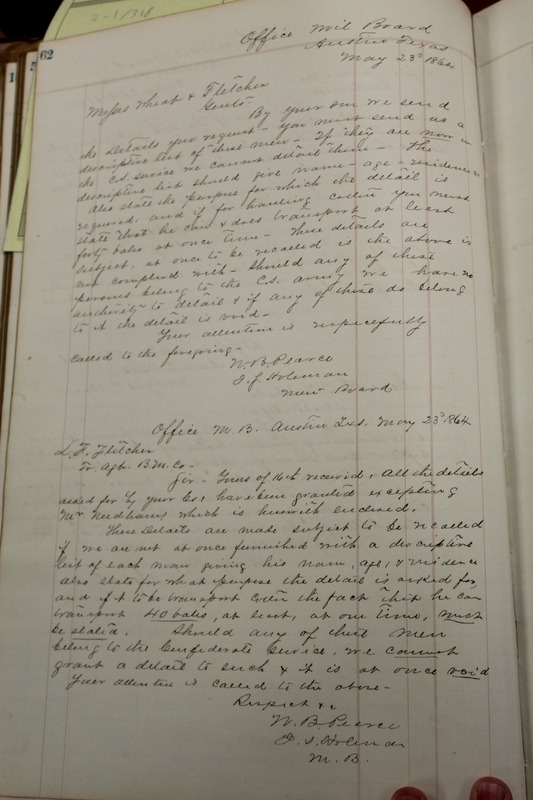 2-1/318
62
Office Mil Board
Austin Texas
May 23d 1864
Messrs Wheat & Fletcher
Gents
By your we send
the Details you request - you must send us a
descriptive list of these men - If they are now in
the C.S. service we cannot detail them - The
descriptive list should give name - age - residence
Also state the purpose for which the detail is
required and if for hauling cotton you must
state that he can & does transport at least
forty bales at one time - These details are
subject at once to be recalled if the above is
not complied with - Should any of these
persons belong to the C.S. army we have no
authority to detail & if any of these do belong
to it the detail is void -
Your attention is respectfully
called to the foregoing -
N. B. Pearce
J. S. Holeman
Mem Board
Office M. B. Austin Txs. May 23d 1864
L. F. Fletcher
Tr. Agt. B. M. Co -
Sir - Yours of 16th received, all the details
asked for by your Co, have been granted excepting
Mr Needhams which is herewith enclosed.
These Details are made subject to be recalled
if we are not at once furnished with a descriptive
list of each man giving his name, age, & residence
also state for what purpose the detail is asked for,
and if it to be transport cotton the fact that he can
transport 40 bales, at least, at one time, must
be stated. Should any of these men
belong to the Confederate Service, we cannot
grant a detail to such & it is at once void
Your attention is called to the above -
Respect &c
N. B. Pearce
J. S. Holeman
M. B.